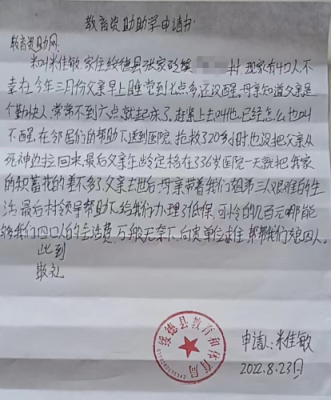 教育资助助学申请书
教育资助网:
我叫米佳敏 家住绥德县张家砭镇 村 现家有4口人 不
幸在今年三月份父亲早上睡觉到七点多还没醒,母亲知道父亲是
个勤快人,常常不到六点就起床了,赶紧上去叫他 已经怎么也叫
不醒,在邻居们的帮助下送到医院 抢救了20多小时也没把父亲从
死神边拉回来,最后父亲年龄定格在了36岁医院一天就把我家
的积蓄花的差不多了,父亲去世后,母亲带着我们姐弟三人艰难的生
活,最后村领导帮助下给我们办理了低保,可怜的几百元哪能
够我们四口人的生活费,万般无奈下,向贵单位求住 帮帮我们娘四人.
此到
敬礼
绥德县教育和体育局
申请人:米佳敏
2022.8.23日